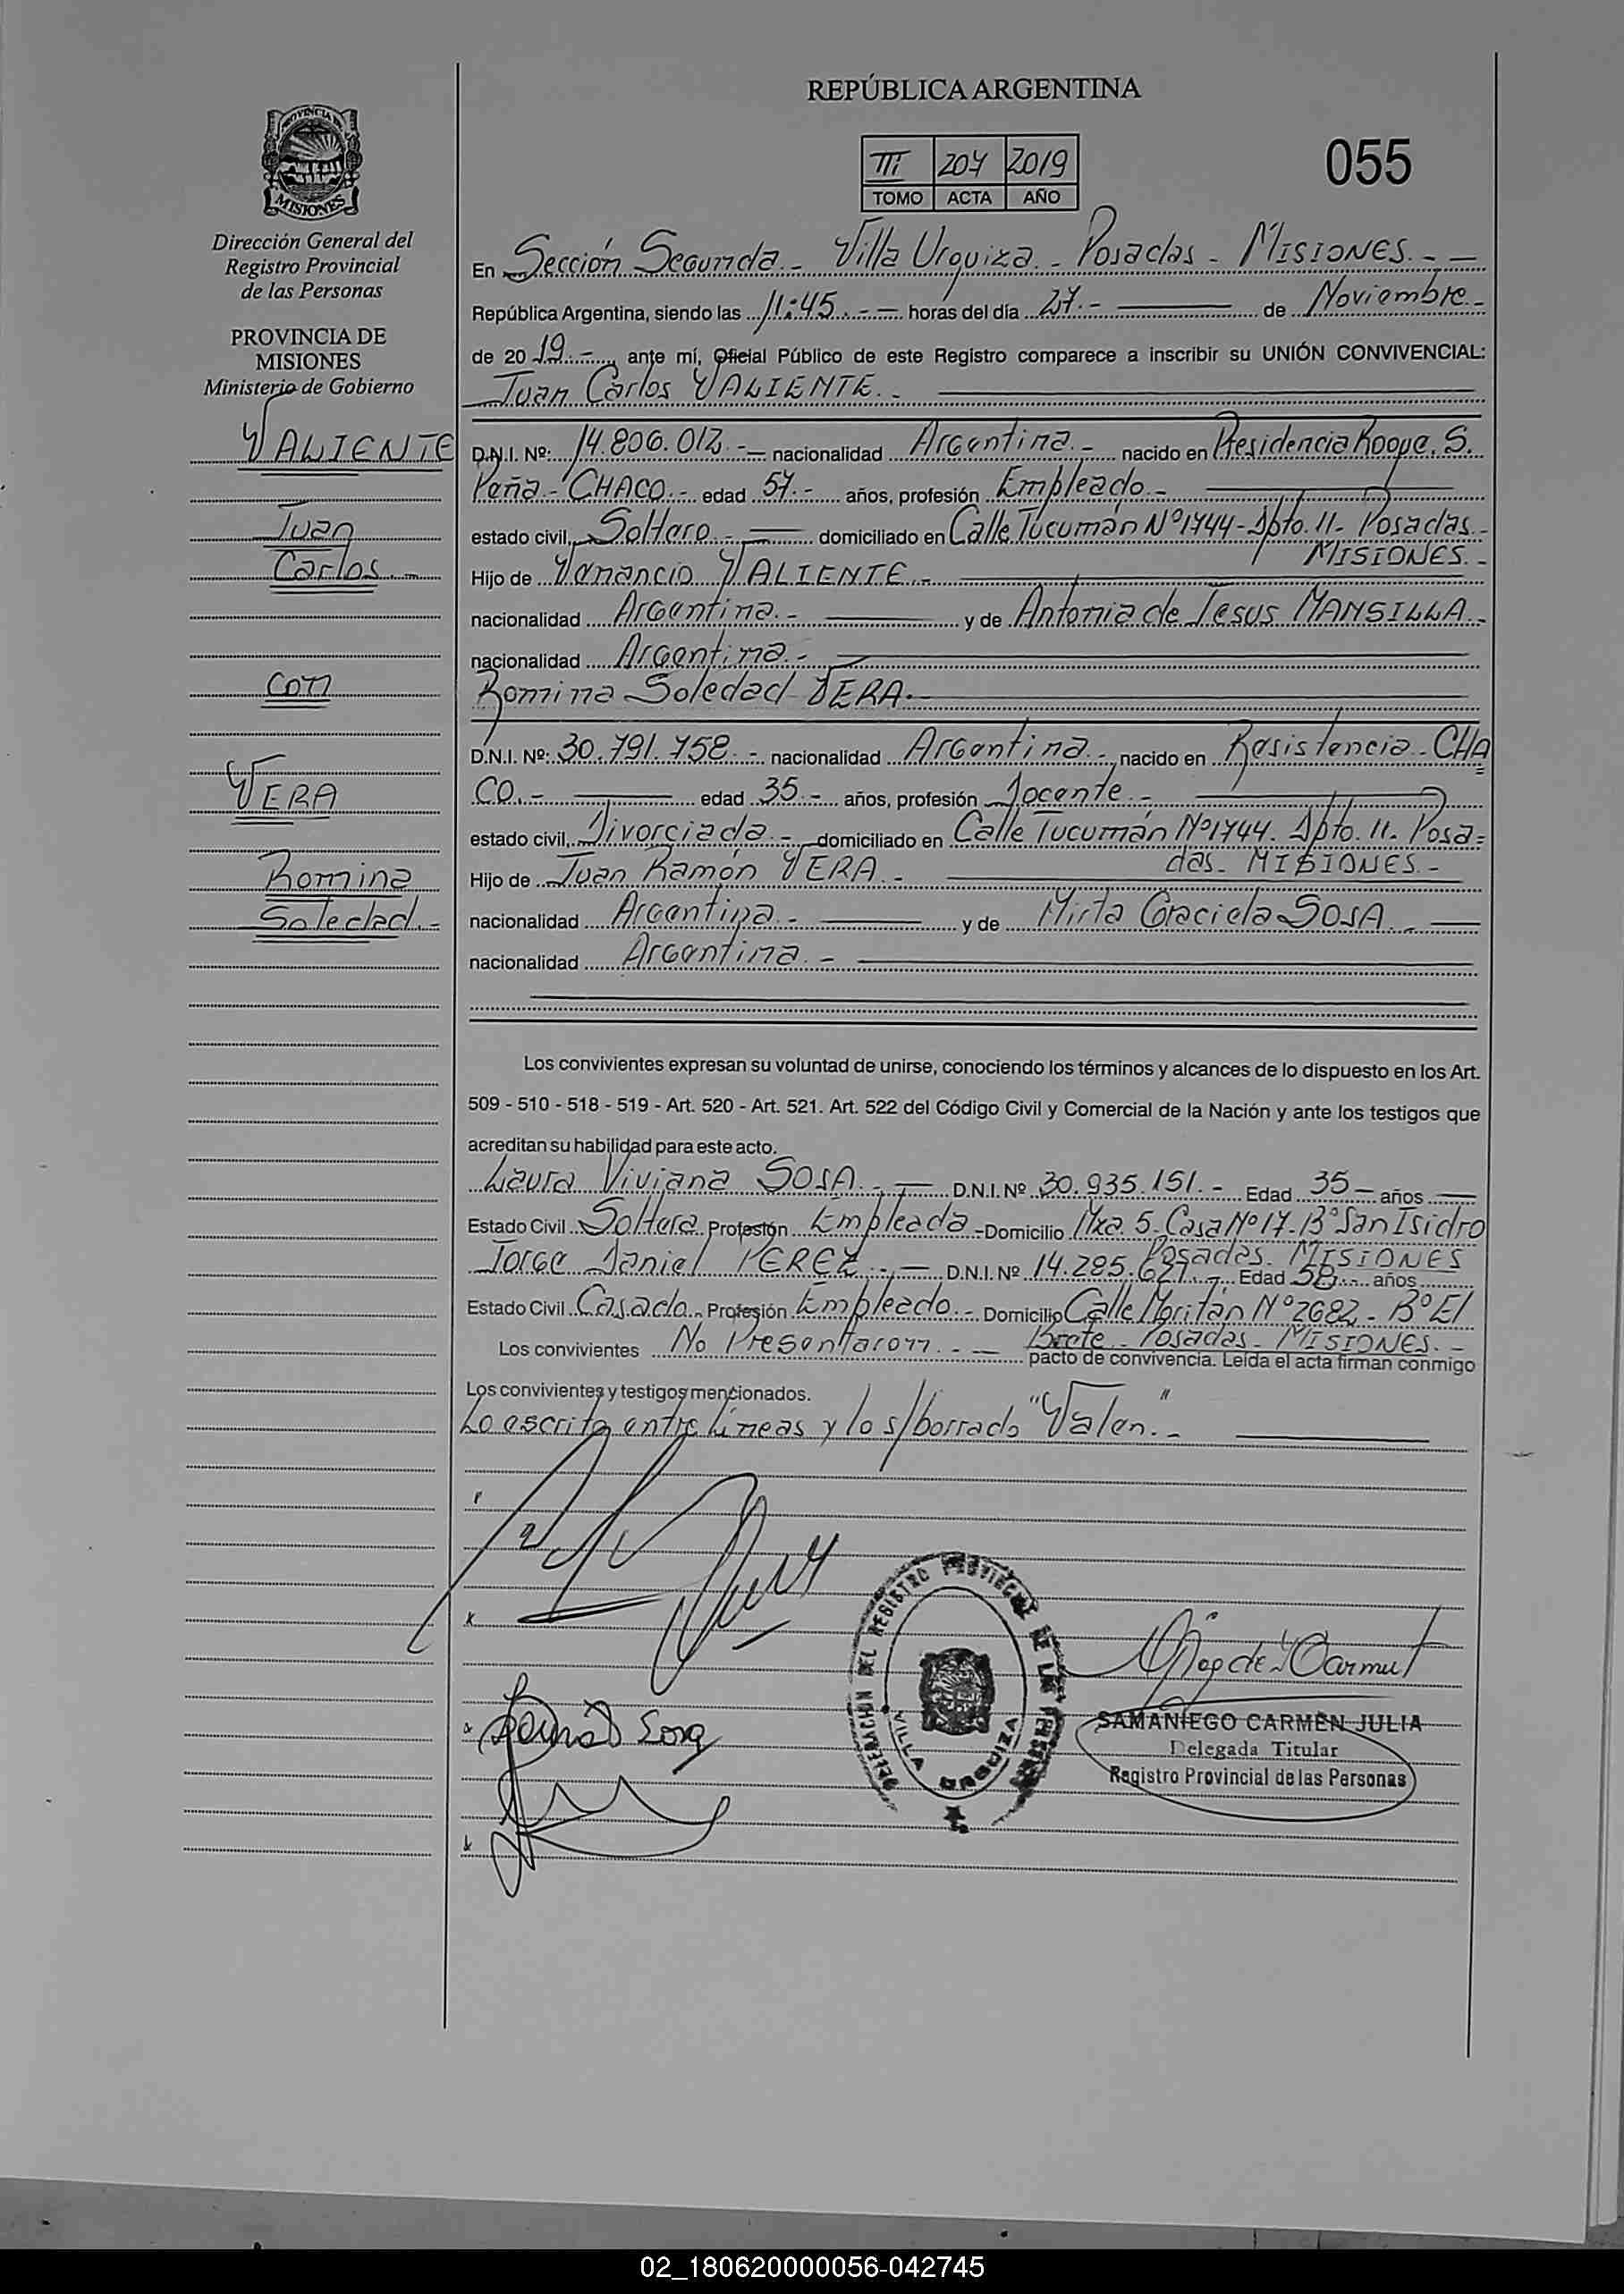 REPÚBLICA ARGENTINA
PROVINCIA DE
MISIONES
III 204 2019
TOMO ACTA AÑO
055
Dirección General del
Registro Provincial
de las Personas
PROVINCIA DE
MISIONES
Ministerio de Gobierno
VALIENTE
Juan
Carlos.-
con
VERA
Romina
Soledad.-
En Sección Segunda.- Villa Urquiza.- Posadas - MISIONES.- -
República Argentina, siendo las 11:45.- horas del día 27.- de Noviembre.-
de 20 19.- , ante mí, Oficial Público de este Registro comparece a inscribir su UNIÓN CONVIVENCIAL:
Juan Carlos VALIENTE.-
D.N.I. Nº: 14.806.012.- nacionalidad Argentina.- nacido en Presidencia Roque. S.
Peña.- CHACO.- edad 57.- años, profesión Empleado.-
estado civil, Soltero.- domiciliado en Calle Tucumán Nº1744-Dpto. 11- Posadas.-
MISIONES.-
Hijo de Venancio VALIENTE.-
nacionalidad Argentina.- y de Antonia de Jesus MANSILLA.-
nacionalidad Argentina.-
Romina Soledad VERA.-
D.N.I. Nº: 30.791.758.- nacionalidad Argentina.-, nacido en Resistencia - CHA
CO.- edad 35.- años, profesión Docente.-
estado civil, Divorciada.- domiciliado en Calle Tucumán Nº1744. Dpto. 11. Posa=
das- MISIONES.-
Hijo de Juan Ramón VERA.-
nacionalidad Argentina.- y de Mirta Graciela SOSA.-
nacionalidad Argentina.-
Los convivientes expresan su voluntad de unirse, conociendo los términos y alcances de lo dispuesto en los Art.
509 - 510 - 518 - 519 - Art. 520 - Art. 521. Art. 522 del Código Civil y Comercial de la Nación y ante los testigos que
acreditan su habilidad para este acto.
Laura Viviana SOSA.- D.N.I. Nº 30.935.151.- Edad 35 - años
Estado Civil Soltera Profesión Empleada - Domicilio Mza. 5- Casa Nº17-Bº San Isidro
Posadas. MISIONES
Jorge Daniel PEREZ.- D.N.I. Nº 14.285.621.- Edad 58.- años
Estado Civil Casado.- Profesión Empleado.- Domicilio Calle Nº2682- Bº El
Brete - Posadas - MISIONES.-
Los convivientes No Presentaron.- pacto de convivencia. Leída el acta firman conmigo
Los convivientes y testigos mencionados.
Lo escrito entre Líneas y lo s/borrado "Valen."-
Laura Sosa
DELEGACION DEL REGISTRO PROVINCIAL DE LAS PERSONAS
VILLA URQUIZA
SAMANIEGO CARMEN JULIA
Delegada Titular
Registro Provincial de las Personas
02_180620000056-042745